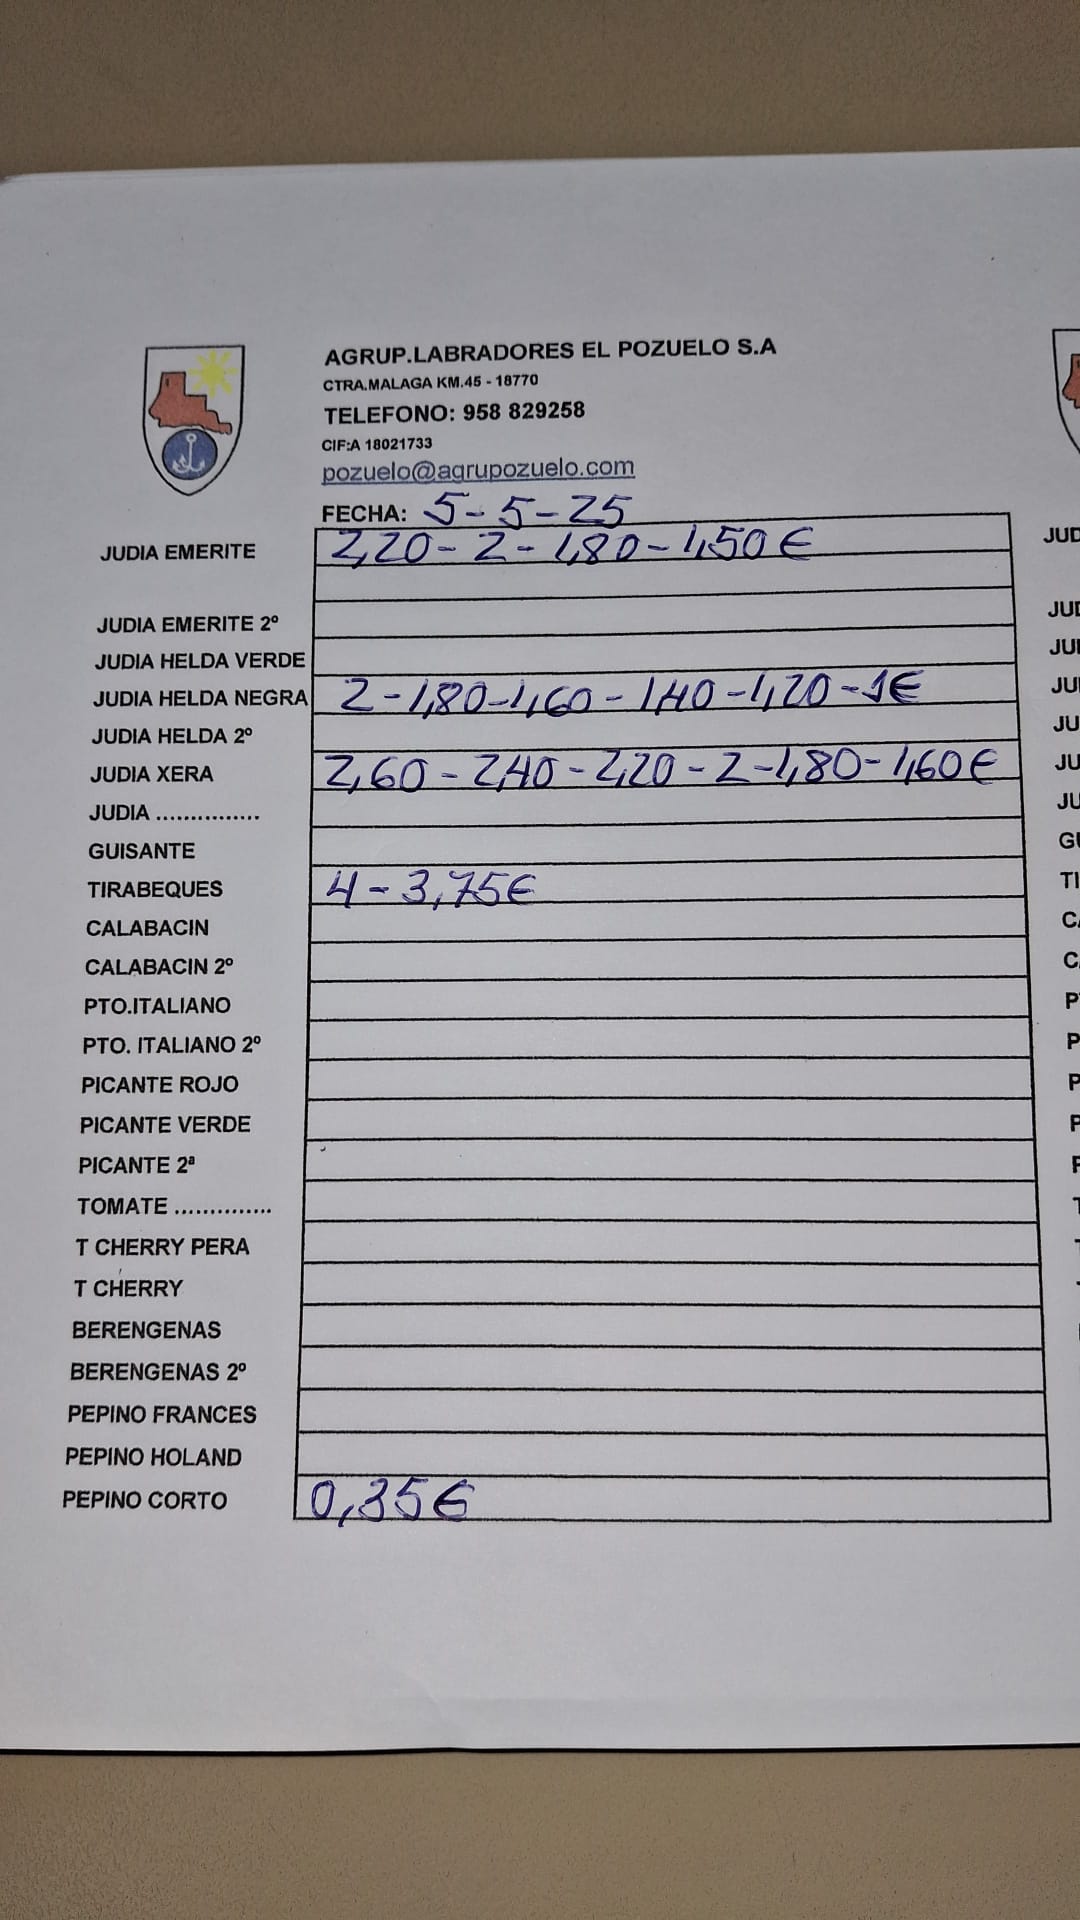 AGRUP.LABRADORES EL POZUELO S.A
CTRA.MALAGA KM.45 - 18770
TELEFONO: 958 829258
CIF:A 18021733
pozuelo@agrupozuelo.com
FECHA: 5-5-25
JUDIA EMERITE 2,20-2-1,80-1,50€
JUDIA EMERITE 2º
JUDIA HELDA VERDE
JUDIA HELDA NEGRA 2-1,80-1,60-1,40-1,20-1€
JUDIA HELDA 2º
JUDIA XERA 2,60-2,40-2,20-2-1,80-1,60€
JUDIA ...............
GUISANTE
TIRABEQUES 4-3,75€
CALABACIN
CALABACIN 2º
PTO.ITALIANO
PTO. ITALIANO 2º
PICANTE ROJO
PICANTE VERDE
PICANTE 2ª
TOMATE ..............
T CHERRY PERA
T CHERRY
BERENGENAS
BERENGENAS 2º
PEPINO FRANCES
PEPINO HOLAND
PEPINO CORTO 0,35€